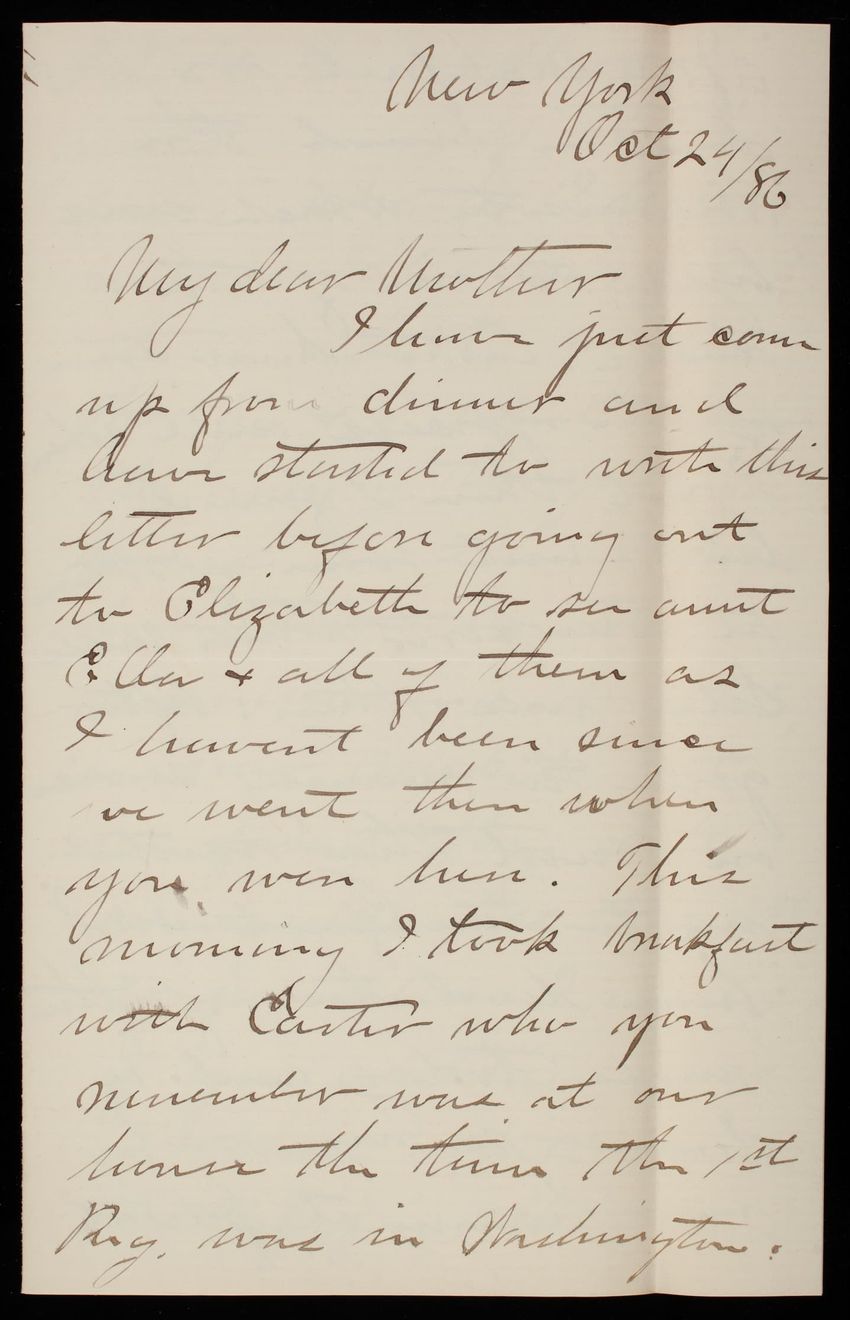 New York
Oct 24/86
My dear Mother
I have just come
up from dinner and
have started to write this
letter before going out
to Elizabeth to see aunt
Ella & all of them as
I havent been since
we went then when
you were here. This
morning I took breakfast
with Easter who you
remember was at our
house the time the 1st
Reg. was in Washington.